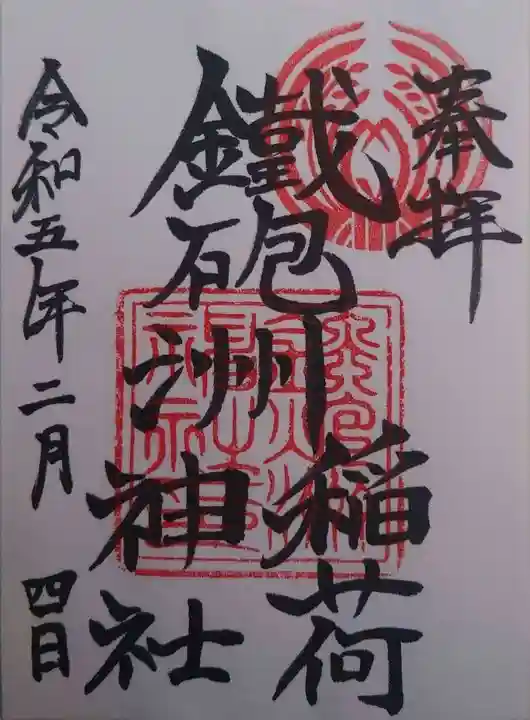 奉拝
鐵砲洲
稲荷
神社
令和五年二月四日